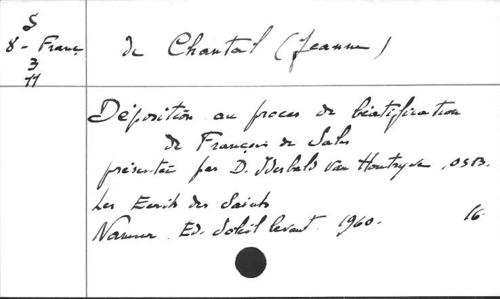 S
8 - Franç
3
11
de Chantal (Jeanne)
Déposition au procès de béatification
de François de Sales
présentée par D. Idesbald Van Houtryve, OSB.
Les Ecrits des Saints
Namur. Ed. Soleil levant. 1960.
16